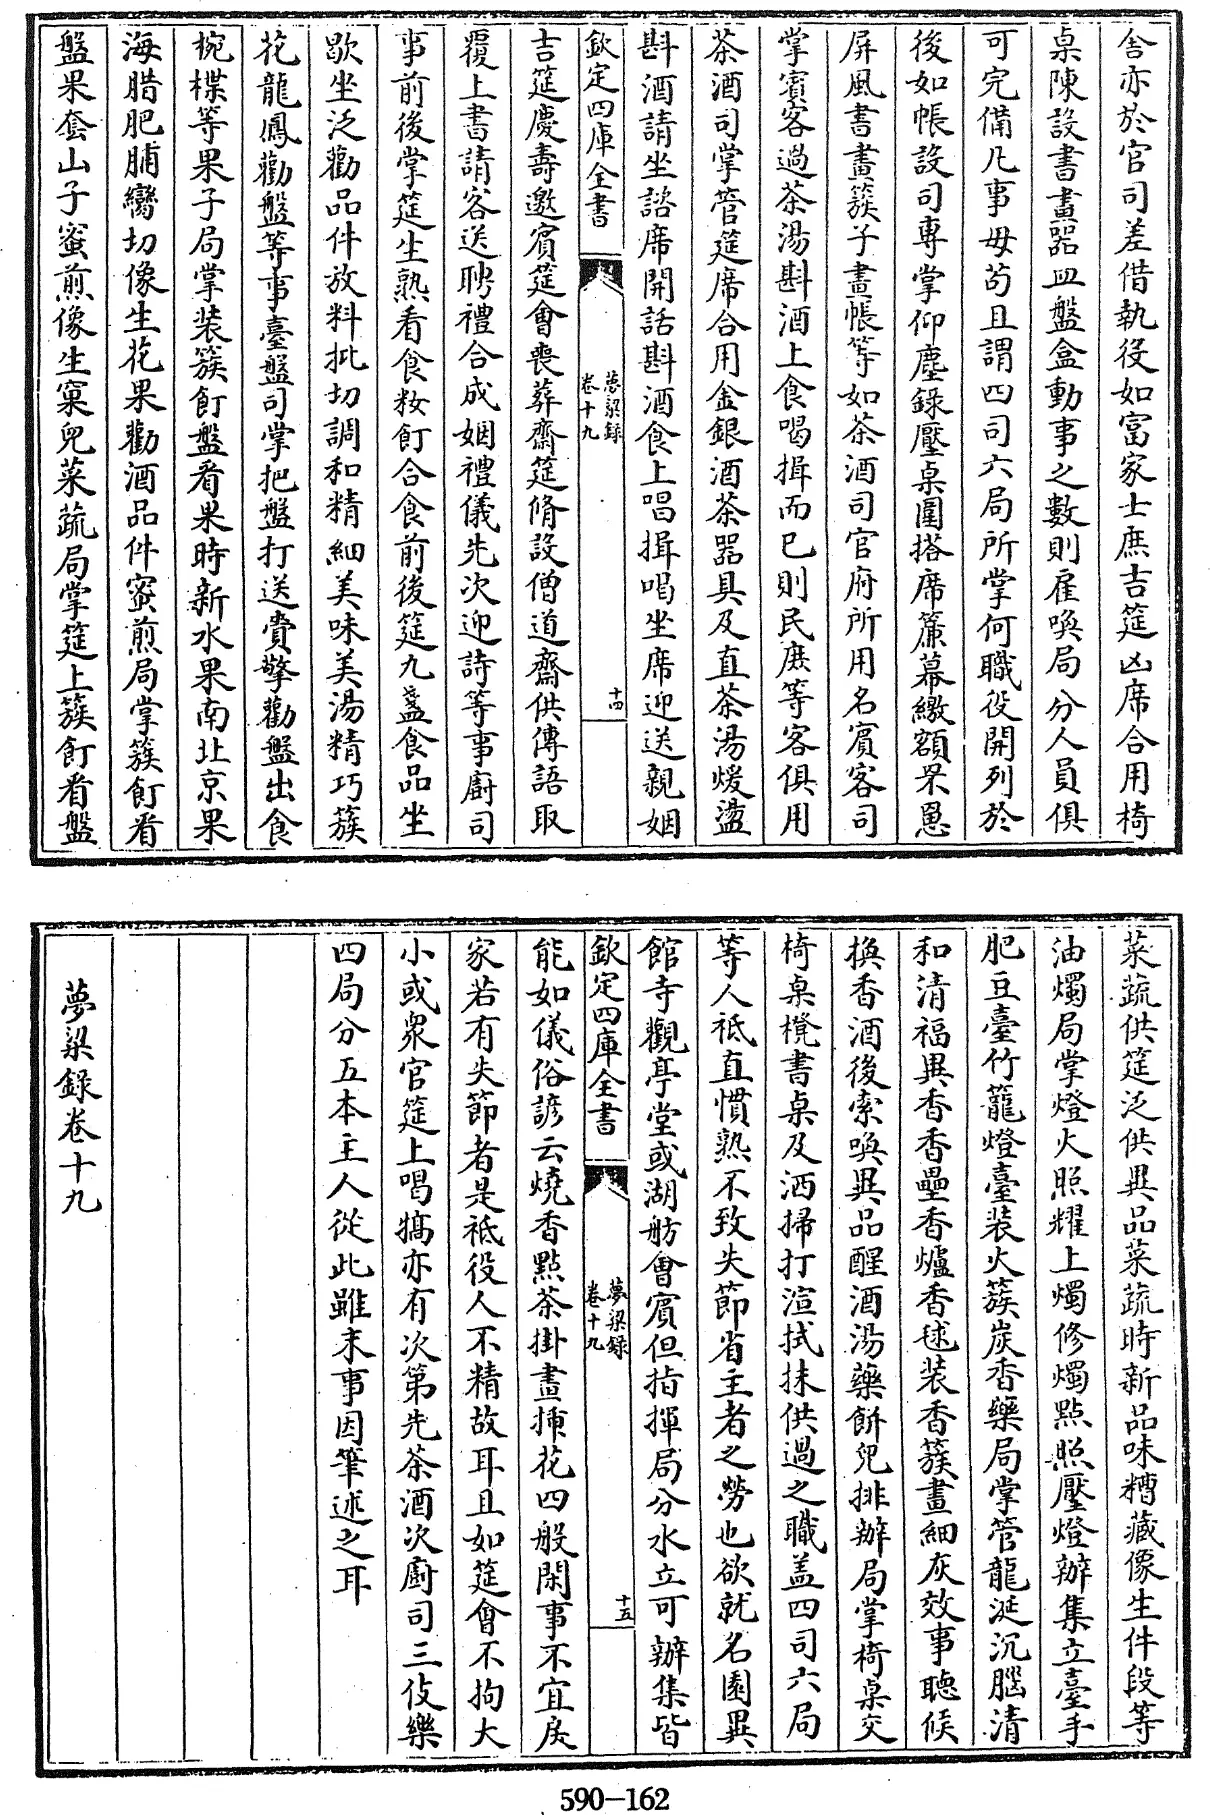 舍亦於官司差借執役如富家士庶吉筵凶席合用椅
桌陳設書畫器皿盤盒動事之數則雇喚局分人員俱
可完備凡事毋苟且謂四司六局所掌何職役開列於
後如帳設司專掌仰塵錄壓桌圍搭席簾幕繳額罘罳
屏風書畫簇子畫帳等如茶酒司官府所用名賓客司
掌賓客過茶湯斟酒上食喝揖而已則民庶等客俱用
茶酒司掌管筵席合用金銀酒茶器具及直茶湯煖盪
斟酒請坐諮席開話斟酒食上唱揖喝坐席迎送親姻
欽定四庫全書
夢粱錄
卷十九
十四
吉筵慶壽邀賓筵會喪葬齋筵脩設僧道齋供傳語取
覆上書請客送聘禮合成姻禮儀先次迎詩等事廚司
事前後掌筵生熟看食粆飣合食前後筵九盞食品坐
歇坐泛勸品件放料批切調和精細美味美湯精巧簇
花龍鳳勸盤等事臺盤司掌把盤打送賫擎勸盤出食
椀楪等果子局掌装簇飣盤看果時新水果南北京果
海腊肥脯臠切像生花果勸酒品件蜜煎局掌簇飣看
盤果套山子蜜煎像生窠兒菜蔬局掌筵上簇飣看盤
菜蔬供筵泛供異品菜蔬時新品味糟藏像生件段等
油燭局掌燈火照耀上燭修燭點照壓燈辦集立臺手
肥豆臺竹籠燈臺装火簇炭香藥局掌管龍涎沉腦清
和清福異香香壘香爐香毬装香簇畫細灰效事聽候
換香酒後索喚異品醒酒湯藥餅兒排辦局掌椅桌交
椅桌櫈書桌及洒掃打渲拭抹供過之職盖四司六局
等人祗直慣熟不致失節省主者之勞也欲就名園異
館寺觀亭堂或湖舫會賓但指揮局分水立可辦集皆
欽定四庫全書
夢粱錄
卷十九
十五
能如儀俗諺云燒香點茶掛畫揷花四般閑事不宜戾
家若有失節者是祗役人不精故耳且如筵會不拘大
小或衆官筵上喝犒亦有次第先茶酒次廚司三伎樂
四局分五本主人從此雖末事因筆述之耳
夢粱錄卷十九
590-162